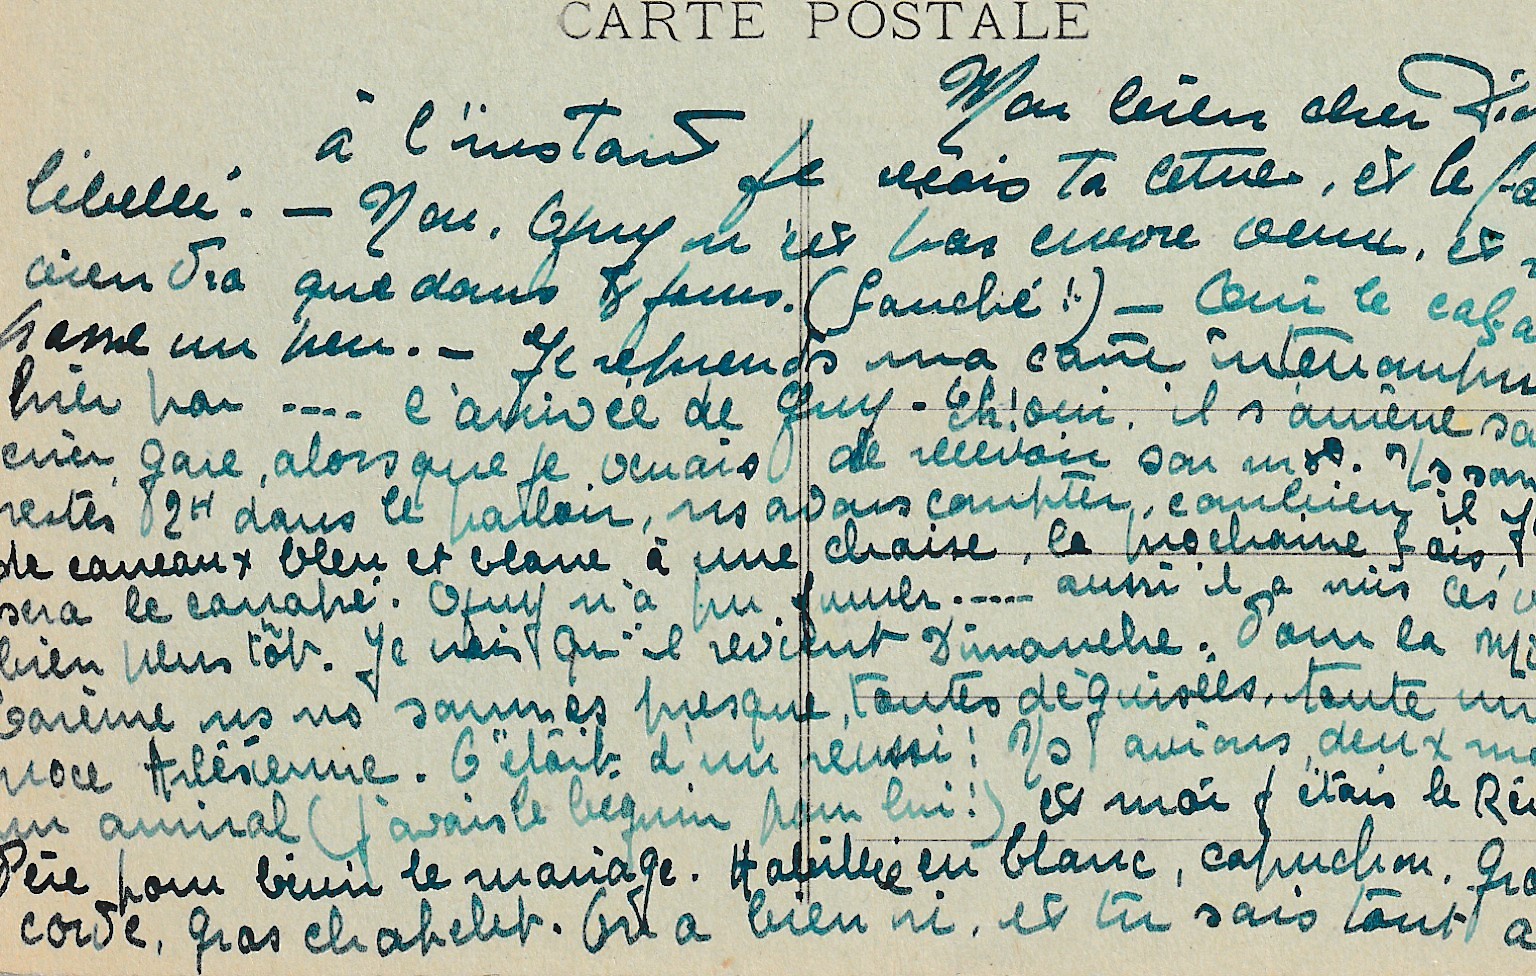 CARTE POSTALE
Mon bien cher
à l'instant je reçois ta lettre, et le
libellé. — Non, Guy n'est pas encore venu, et
viendra que dans 8 jours. (fauché !!) — Oui le
passe un peu. — Je reprends ma carte interrompue
hier par .... l'arrivée de Guy. Ah! oui, il s'amène sa
crier gare, alors que je venais de recevoir son mot. Ns som
restés 2H dans le parloir, ns avons compter, combien il y
de carreaux bleu et blanc à une chaise, la prochaine fois,
sera le canapé. Guy n'a pu fumer .... aussi il a mis
bien plus tôt. Je crois qu'il revient Dimanche. Pour la Mi
Carème ns ns sommes presque toutes déguisées, toute une
noce Arlésienne. C'était d'un réussi ! Ns avions deux
un amiral (j'avais le béguin pour lui !) et moi j'étais le Ré
Père pour bénir le mariage. Habillée en blanc, capuchon, gro
corde, gros chapelet. On a bien ri, et tu sais tout a